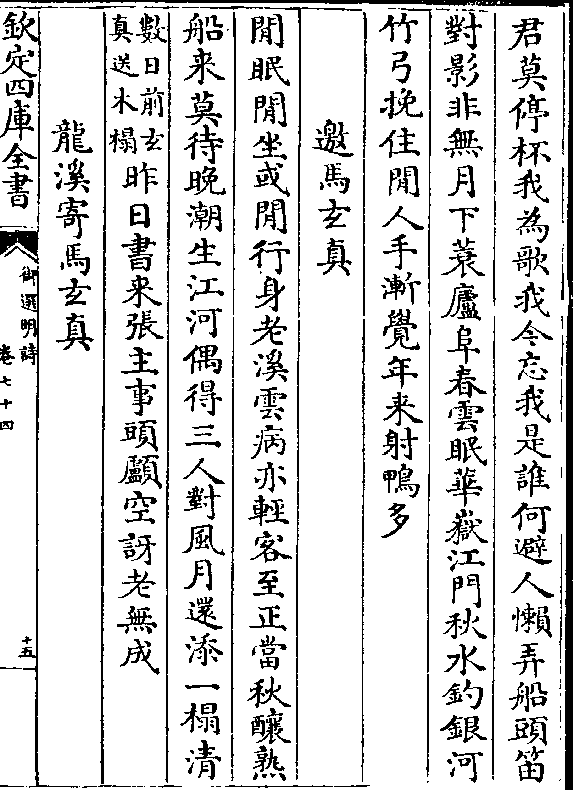 君莫停杯我為歌我今忘我是誰何避人懶弄船頭笛
對影非無月下蓑廬阜春雲眠華嶽江門秋水釣銀河
竹弓挽住閒人手漸覺年来射鴨多
邀馬玄真
閒眠閒坐或閒行身老溪雲病亦輕客至正當秋釀熟
船来莫待晚潮生江河偶得三人對風月還添一榻清
數日前玄
真送木榻
昨日書来張主事頭顱空訝老無成
龍溪寄馬玄真
欽定四庫全書
御選明詩
卷七十四
十五